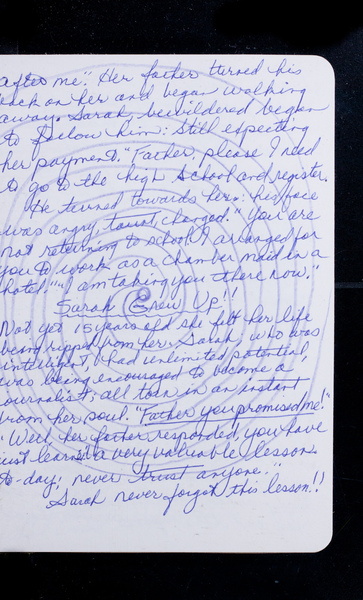 after me." Her father turned his
back on her and began walking
away. Sarah, bewildered began
to follow him: still expecting
her payment. "Father, please I need
to go to the high School and register.
He turned towards her: his face
was angry, changed. "You are
not returning to school! I arranged for
you to work as a chamber maid in a
hotel!" "I am taking you there now."
Sarah Grew Up!!
Not yet 15 years old she felt her life
being ripped from her. Sarah, who was
intelligent, had unlimited potential,
was being encouraged to become a
journalist; all torn in an instant
from her soul. "Father you promised me!"
"Well, her father responded, you have
just learned a very valuable lesson.
to-day; never trust anyone."
Sarah never forgot this lesson!!